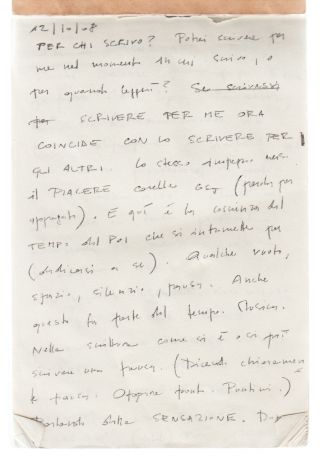 12/10/08
PER CHI SCRIVO? Potrei scrivere per
me nel momento in cui scrivo, o
per quando leggerò? Se scrivessi
per SCRIVERE PER ME ORA
COINCIDE CON LO SCRIVERE PER
GLI ALTRI. Lo stesso
il PIACERE (parola per
). E qui è la coscienza del
TEMPO del POI che si intromette per
(dedicarsi a se). Qualche vuoto,
spazio, silenzio, pausa. Anche
questo fa parte del tempo. Musica.
Nella scrittura come si è
scrivere una pausa. (Dicendo chiaramen
te pausa. Oppure . Puntini.)
Partendo dalla SENSAZIONE.